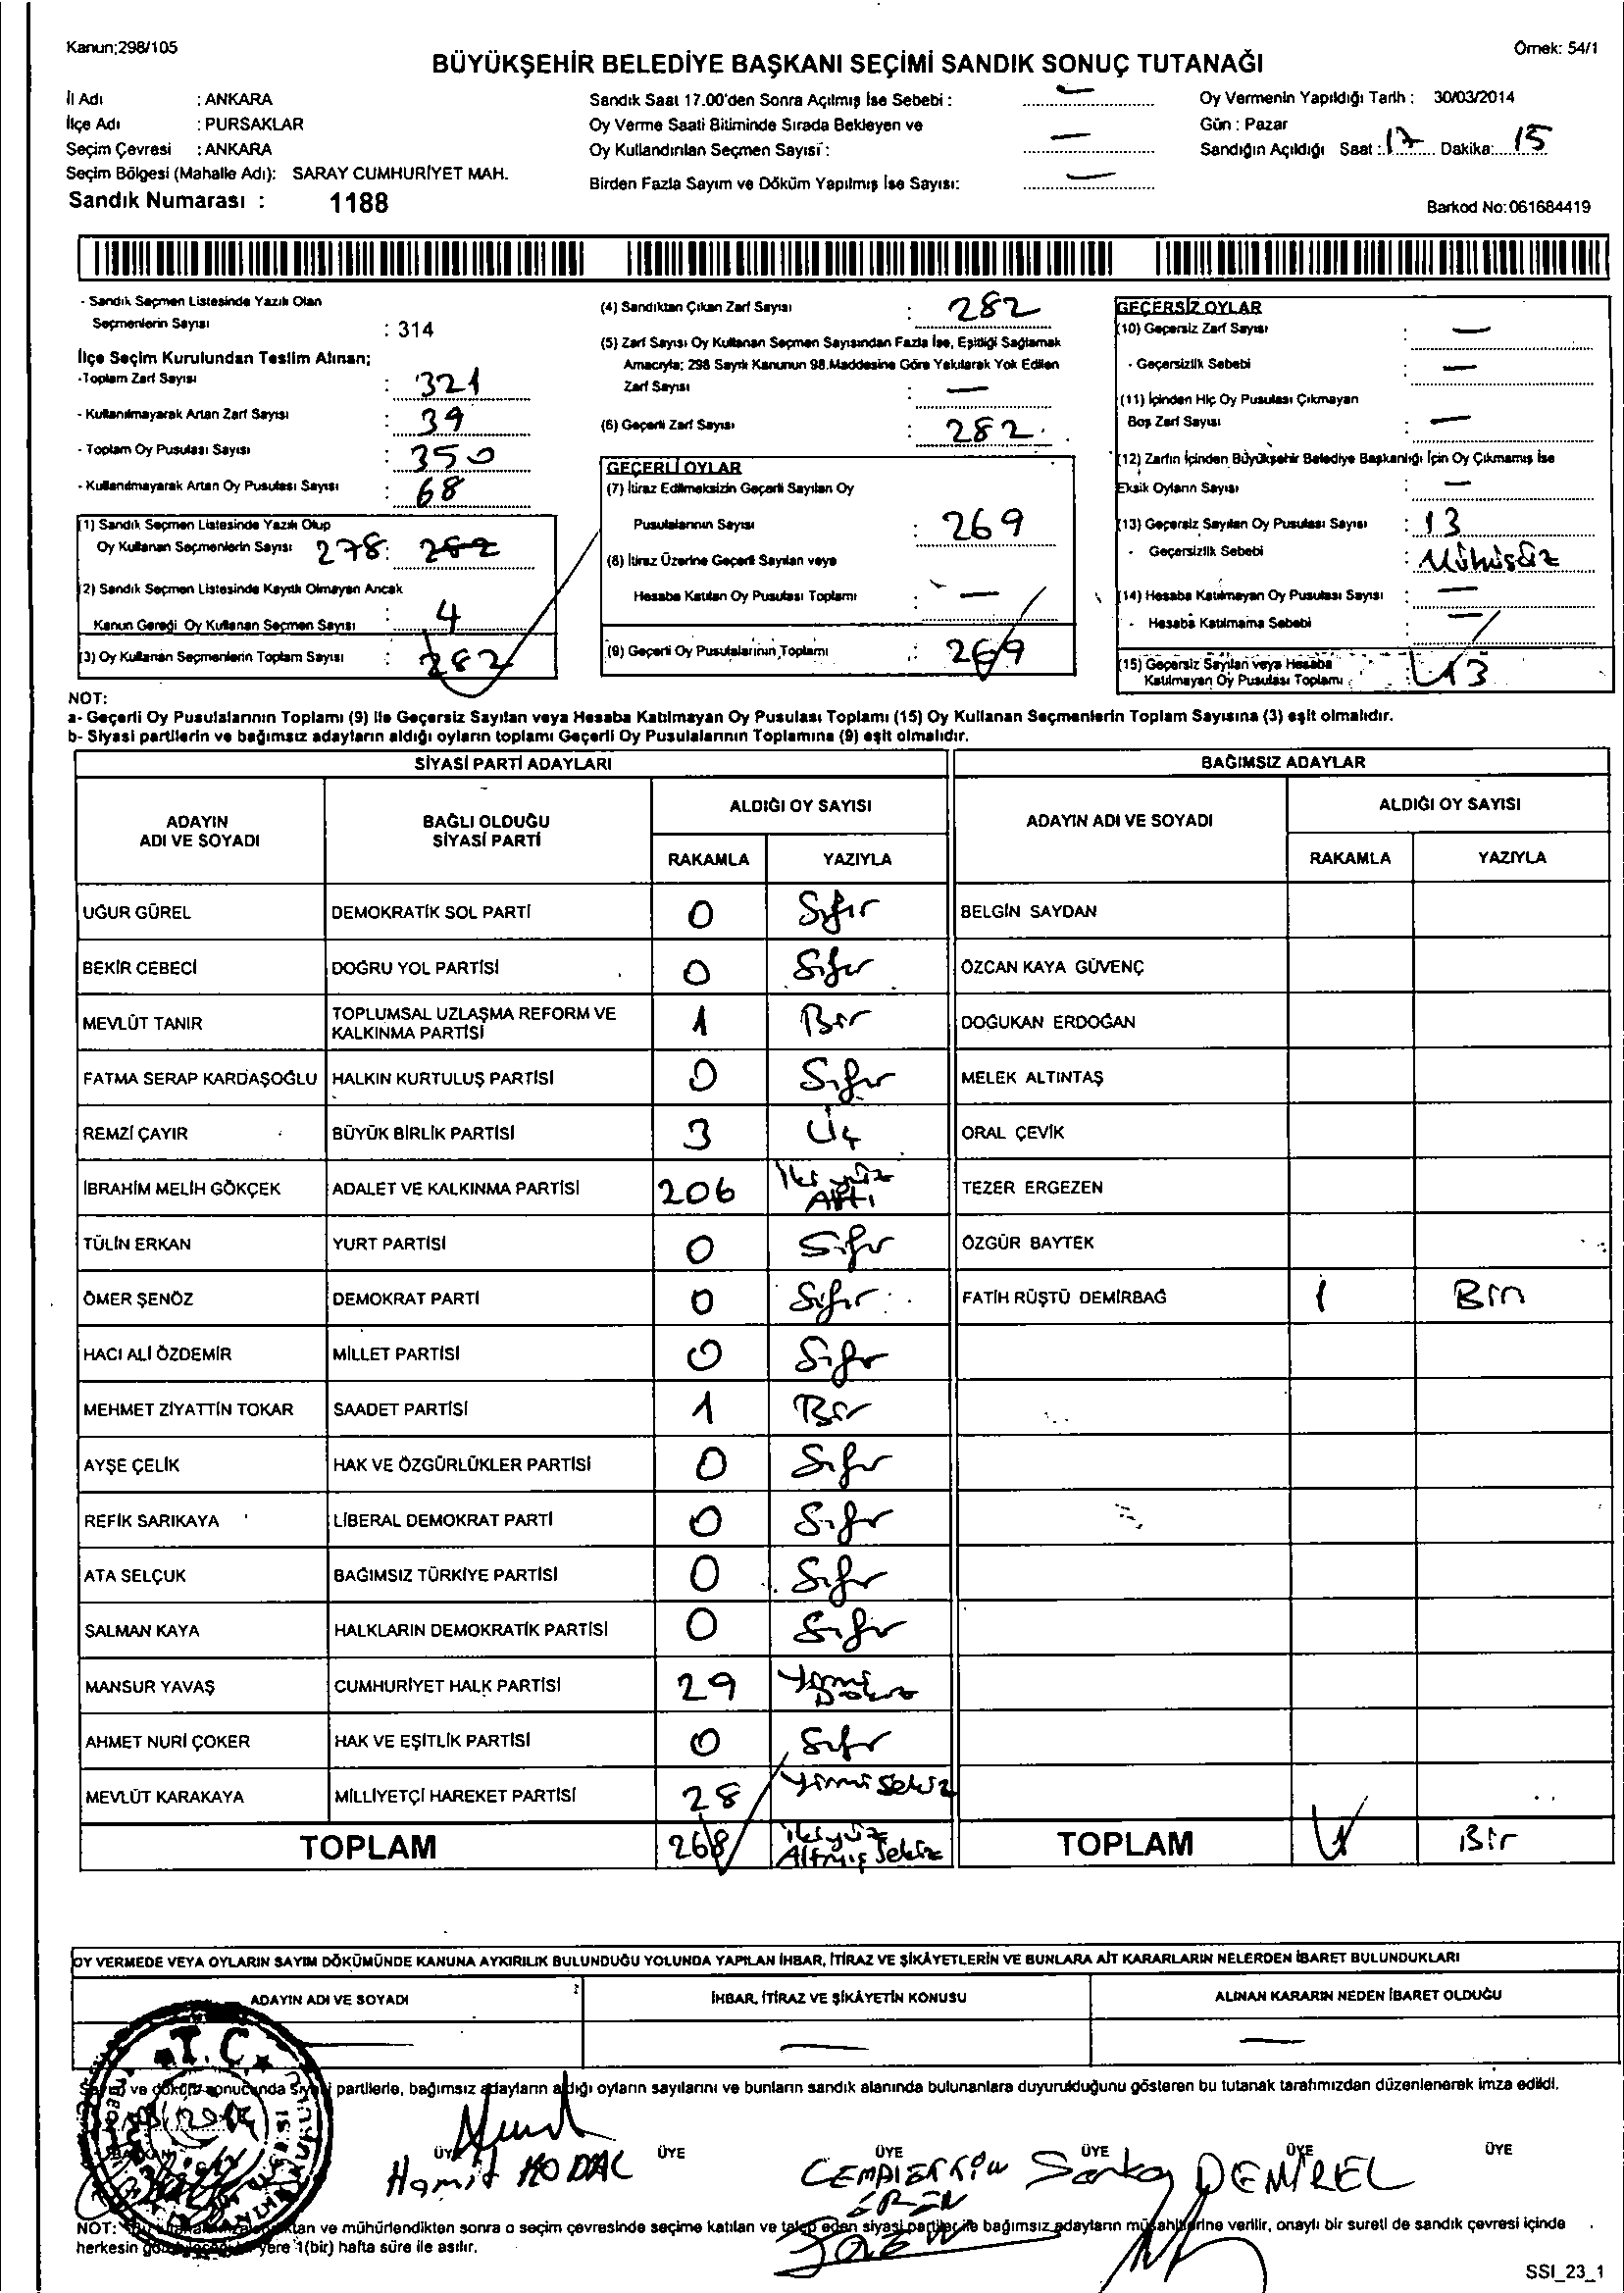 Kanun;298/105
Örnek: 54/1
BÜYÜKŞEHİR BELEDİYE BAŞKANI SEÇİMİ SANDIK SONUÇ TUTANAĞI
İl Adı : ANKARA
İlçe Adı : PURSAKLAR
Seçim Çevresi : ANKARA
Seçim Bölgesi (Mahalle Adı): SARAY CUMHURİYET MAH.
Sandık Numarası : 1188
Sandık Saat 17.00'den Sonra Açılmış İse Sebebi : —
Oy Verme Saati Bitiminde Sırada Bekleyen ve
Oy Kullandırılan Seçmen Sayısı : —
Birden Fazla Sayım ve Döküm Yapılmış İse Sayısı: —
Oy Vermenin Yapıldığı Tarih : 30/03/2014
Gün : Pazar
Sandığın Açıldığı Saat : 17 Dakika: 15
Barkod No:061684419
- Sandık Seçmen Listesinde Yazılı Olan
Seçmenlerin Sayısı : 314
İlçe Seçim Kurulundan Teslim Alınan;
-Toplam Zarf Sayısı : 321
- Kullanılmayarak Artan Zarf Sayısı : 39
- Toplam Oy Pusulası Sayısı : 350
- Kullanılmayarak Artan Oy Pusulası Sayısı : 68
(1) Sandık Seçmen Listesinde Yazılı Olup
Oy Kullanan Seçmenlerin Sayısı 278 : 282
(2) Sandık Seçmen Listesinde Kayıtlı Olmayan Ancak
Kanun Gereği Oy Kullanan Seçmen Sayısı : 4
(3) Oy Kullanan Seçmenlerin Toplam Sayısı : 282
(4) Sandıktan Çıkan Zarf Sayısı : 282
(5) Zarf Sayısı Oy Kullanan Seçmen Sayısından Fazla İse, Eşitliği Sağlamak
Amacıyla; 298 Sayılı Kanunun 98.Maddesine Göre Yakılarak Yok Edilen
Zarf Sayısı : —
(6) Geçerli Zarf Sayısı : 282
GEÇERLİ OYLAR
(7) İtiraz Edilmeksizin Geçerli Sayılan Oy
Pusulalarının Sayısı : 269
(8) İtiraz Üzerine Geçerli Sayılan veya
Hesaba Katılan Oy Pusulası Toplamı : —
(9) Geçerli Oy Pusulalarının Toplamı : 269
GEÇERSİZ OYLAR
(10) Geçersiz Zarf Sayısı : —
- Geçersizlik Sebebi : —
(11) İçinden Hiç Oy Pusulası Çıkmayan
Boş Zarf Sayısı : —
(12) Zarfın İçinden Büyükşehir Belediye Başkanlığı İçin Oy Çıkmamış İse
Eksik Oyların Sayısı : —
(13) Geçersiz Sayılan Oy Pusulası Sayısı : 13
- Geçersizlik Sebebi : Mühürsüz
(14) Hesaba Katılmayan Oy Pusulası Sayısı : —
- Hesaba Katılmama Sebebi : —
(15) Geçersiz Sayılan veya Hesaba
Katılmayan Oy Pusulası Toplamı : 13
NOT:
a- Geçerli Oy Pusulalarının Toplamı (9) ile Geçersiz Sayılan veya Hesaba Katılmayan Oy Pusulası Toplamı (15) Oy Kullanan Seçmenlerin Toplam Sayısına (3) eşit olmalıdır.
b- Siyasi partilerin ve bağımsız adayların aldığı oyların toplamı Geçerli Oy Pusulalarının Toplamına (9) eşit olmalıdır.
SİYASİ PARTİ ADAYLARI
BAĞIMSIZ ADAYLAR
ADAYIN ADI VE SOYADI
BAĞLI OLDUĞU SİYASİ PARTİ
ALDIĞI OY SAYISI
RAKAMLA YAZIYLA
ADAYIN ADI VE SOYADI
ALDIĞI OY SAYISI
RAKAMLA YAZIYLA
UĞUR GÜREL DEMOKRATİK SOL PARTİ 0 Sıfır BELGİN SAYDAN
BEKİR CEBECİ DOĞRU YOL PARTİSİ 0 Sıfır ÖZCAN KAYA GÜVENÇ
MEVLÜT TANIR TOPLUMSAL UZLAŞMA REFORM VE KALKINMA PARTİSİ 1 Bir DOĞUKAN ERDOĞAN
FATMA SERAP KARDAŞOĞLU HALKIN KURTULUŞ PARTİSİ 0 Sıfır MELEK ALTINTAŞ
REMZİ ÇAYIR BÜYÜK BİRLİK PARTİSİ 3 Üç ORAL ÇEVİK
İBRAHİM MELİH GÖKÇEK ADALET VE KALKINMA PARTİSİ 206 İki yüz Altı TEZER ERGEZEN
TÜLİN ERKAN YURT PARTİSİ 0 Sıfır ÖZGÜR BAYTEK
ÖMER ŞENÖZ DEMOKRAT PARTİ 0 Sıfır FATİH RÜŞTÜ DEMİRBAĞ 1 Bir
HACI ALİ ÖZDEMİR MİLLET PARTİSİ 0 Sıfır
MEHMET ZİYATTİN TOKAR SAADET PARTİSİ 1 Bir
AYŞE ÇELİK HAK VE ÖZGÜRLÜKLER PARTİSİ 0 Sıfır
REFİK SARIKAYA LİBERAL DEMOKRAT PARTİ 0 Sıfır
ATA SELÇUK BAĞIMSIZ TÜRKİYE PARTİSİ 0 Sıfır
SALMAN KAYA HALKLARIN DEMOKRATİK PARTİSİ 0 Sıfır
MANSUR YAVAŞ CUMHURİYET HALK PARTİSİ 29 Yirmi Dokuz
AHMET NURİ ÇOKER HAK VE EŞİTLİK PARTİSİ 0 Sıfır
MEVLÜT KARAKAYA MİLLİYETÇİ HAREKET PARTİSİ 28 Yirmi Sekiz
TOPLAM 268 İkiyüz Altmış Sekiz TOPLAM 1 Bir
OY VERMEDE VEYA OYLARIN SAYIM DÖKÜMÜNDE KANUNA AYKIRILIK BULUNDUĞU YOLUNDA YAPILAN İHBAR, İTİRAZ VE ŞİKÂYETLERİN VE BUNLARA AİT KARARLARIN NELERDEN İBARET BULUNDUKLARI
ADAYIN ADI VE SOYADI İHBAR, İTİRAZ VE ŞİKÂYETİN KONUSU ALINAN KARARIN NEDEN İBARET OLDUĞU
— — —
T.C.
Sayım ve döküm sonucunda siyasi partilerle, bağımsız adayların aldığı oyların sayılarını ve bunların sandık alanında bulunanlara duyurulduğunu gösteren bu tutanak tarafımızdan düzenlenerek imza edildi.
ÜYE ÜYE ÜYE ÜYE ÜYE ÜYE
Hamit DEMİREL
EREN
NOT: ve mühürlendikten sonra o seçim çevresinde seçime katılan ve talep eden siyasi partiler ile bağımsız adayların müşahitlerine verilir, onaylı bir sureti de sandık çevresi içinde
herkesin yere 1(bir) hafta süre ile asılır.
SSI_23_1